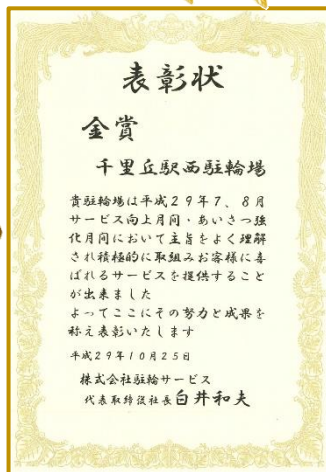 表彰状
金賞
千里丘駅西駐輪場
貴駐輪場は平成29年7、8月
サービス向上月間・あいさつ強
化月間において主旨をよく理解
され積極的に取組みお客様に喜
ばれるサービスを提供すること
が出来ました
よってここにその努力と成果を
称え表彰いたします
平成29年10月25日
株式会社駐輪サービス
代表取締役社長 白井和夫